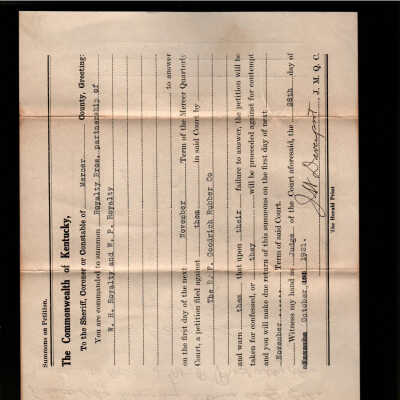 Summons on Petition.
The Commonwealth of Kentucky,
To the Sheriff, Coroner or Constable of Mercer County, Greeting:
You are commanded to summon Royalty Bros. partnership of
W. H. Royalty and W. P. Royalty
to answer
on the first day of the next November Term of the Mercer Quarterly
Court, a petition filed against them in said Court by
The B. F. Goodrich Rubber Co
and warn them that upon their failure to answer, the petition will be
taken for confessed, or they will be proceeded against for contempt
and you will make due return of this summons on the first day of next
November Term of said Court.
Witness my hand as Judge of the Court aforesaid, the 28th day of
October, 1921.
J. M. Q. C.
The Herald Print